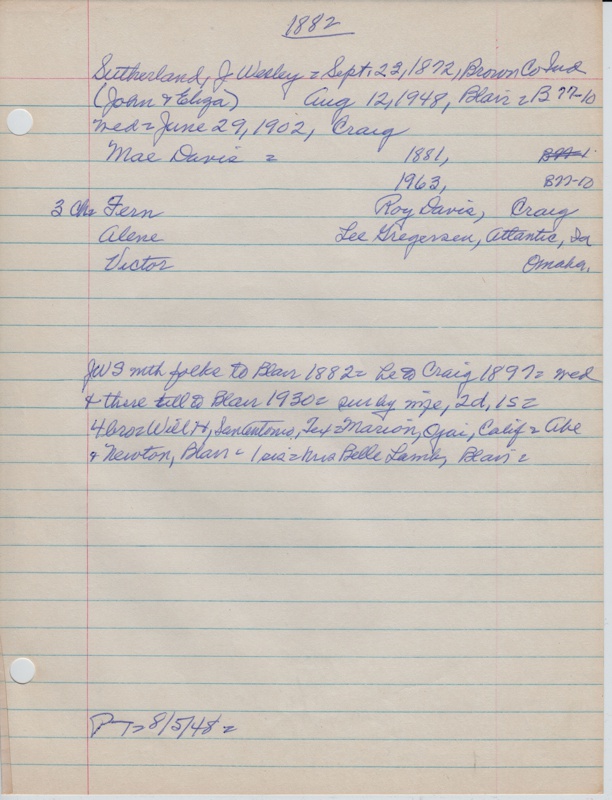 1882
Sutherland, J Wesley = Sept. 23, 1872, Brown Co Ind
(John & Eliza) Aug 12, 1948, Blair = B 77-10
Wed = June 29, 1902, Craig
Mae Davis = 1881, B77-1
1963, B77-10
3 Ch = Fern Roy Davis, Craig
Alene Lee Gregersen, Atlantic, Ia
Victor Omaha.
JWS with folks to Blair 1882 = he to Craig 1897 = wed
& there till to Blair 1930 = sur by wife, 2d, 1s =
4 bro = Will H, San Antonio, Tex = Marion, Ojai, Calif = Abe
& Newton, Blair = 1 sis = Mrs Belle Lamb, Blair =
P-T = 8/5/48 =